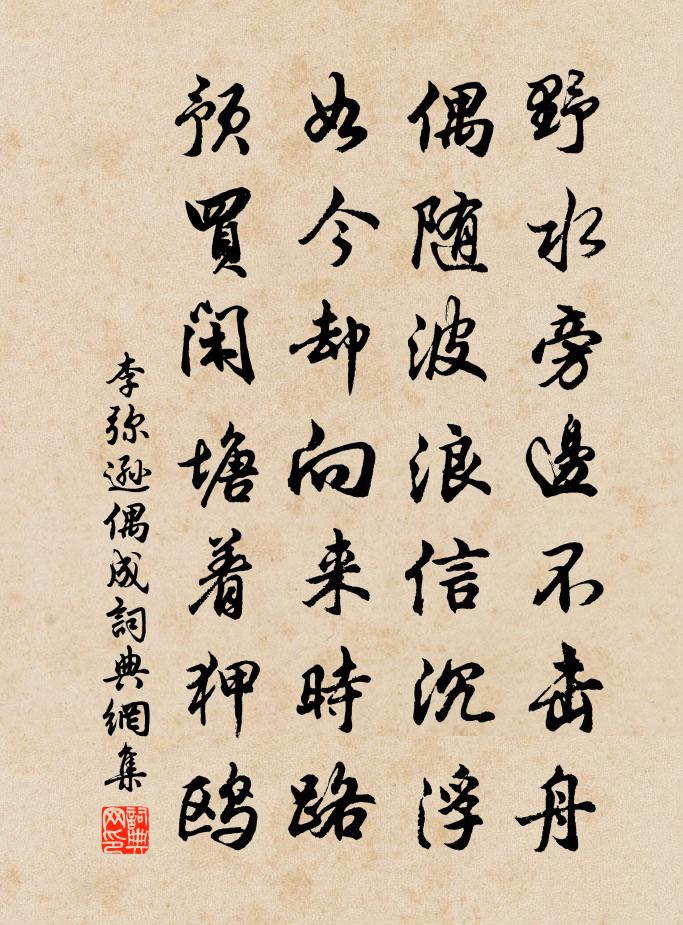 野水旁邊不击舟
偶随波浪信沉浮
如今却向来時路
預買閑塘着狎鸥
李弥遜偶成詞典網集
詞典网印